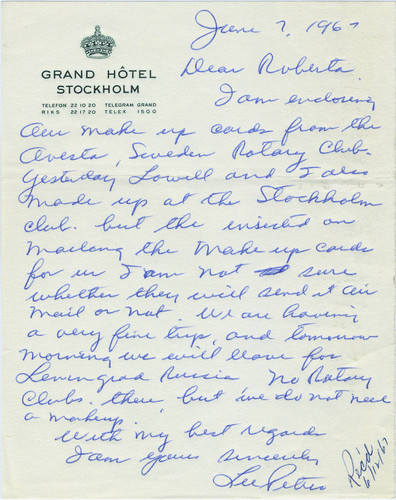 June 7, 1967
GRAND HÔTEL
STOCKHOLM
TELEFON 22 10 20 TELEGRAM GRAND
RIKS 22 17 20 TELEX 1500
Dear Roberta
I am enclosing
our make up cards from the
Avesta, Sweden Rotary Club.
Yesterday Lowell and I also
made up at the Stockholm
club. but the insisted on
mailing the make up cards
for us I am not sure
whether they will send it air
mail or not. We are having
a very fine trip, and tomorrow
morning we will leave for
Leningrad Russia No Rotary
Clubs. there but we do not need
a makeup.
With my best regards
I am yours sincerely
Rec'd
6/12/67